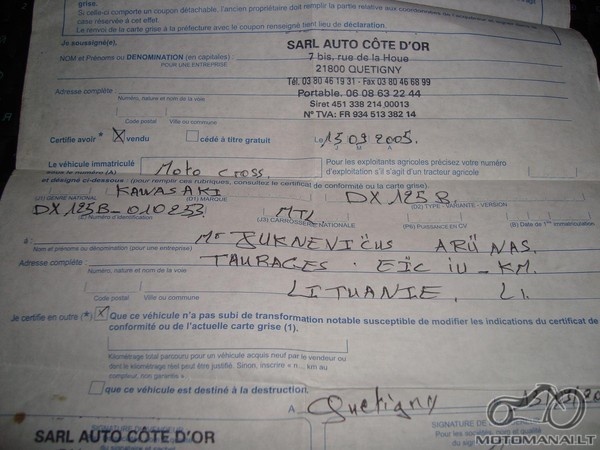 grise.
Si celle-ci comporte un coupon détachable, l'ancien propriétaire doit remplir la partie relative aux coordonnées de l'acquéreur
case réservée à cet effet.
Le renvoi de la carte grise à la préfecture avec le coupon renseigné tient lieu de déclaration.
Je soussigné(e),
SARL AUTO CÔTE D'OR
NOM et Prénoms ou DÉNOMINATION (en capitales) :
POUR UNE ENTREPRISE
7 bis, rue de la Houe
21800 QUETIGNY
Tél. 03 80 46 19 31 - Fax 03 80 46 68 99
Adresse complète :
Portable. 06 08 63 22 44
Numéro, nature et nom de la voie
Siret 451 338 214 00013
Code postal Ville ou commune
N° TVA: FR 934 513 382 14
Certifie avoir * X vendu cédé à titre gratuit Le 15 09 2005.
J M A
Le véhicule immatriculé
sous le numéro (A)
Moto cross.
Pour les exploitants agricoles précisez votre numéro
d'exploitation s'il s'agit d'un tracteur agricole
et désigné ci-dessous : (pour remplir ces rubriques, consultez le certificat de conformité ou la carte grise).
KAWASAKI DX 125 B
(J1) GENRE NATIONAL (D1) MARQUE (D2) TYPE - VARIANTE - VERSION
DX 125B-010253 MTL
(E) Numéro d'identification (J3) CARROSSERIE NATIONALE (P6) PUISSANCE EN CV (B) Date de 1re immatriculation.
à Mr ZUKNEVIČUS ARŪNAS.
Nom et prénoms ou dénomination (pour une entreprise)
Adresse complète : TAURAGES. - KM.
Numéro, nature et nom de la voie
LITUANIE. LI.
Code postal Ville ou commune
Je certifie en outre (*) X Que ce véhicule n'a pas subi de transformation notable susceptible de modifier les indications du certificat de
conformité ou de l'actuelle carte grise (1).
Kilométrage total parcouru pour un véhicule acquis neuf par le vendeur ou
dont le kilométrage réel peut être justifié. Sinon, inscrire « n ... km au
compteur, non garantis »
que ce véhicule est destiné à la destruction.
A Quetigny
SARL AUTO CÔTE D'OR
SIGNATURE DE
Pour les sociétés, nom et qualité
MOTOMANAI.LT